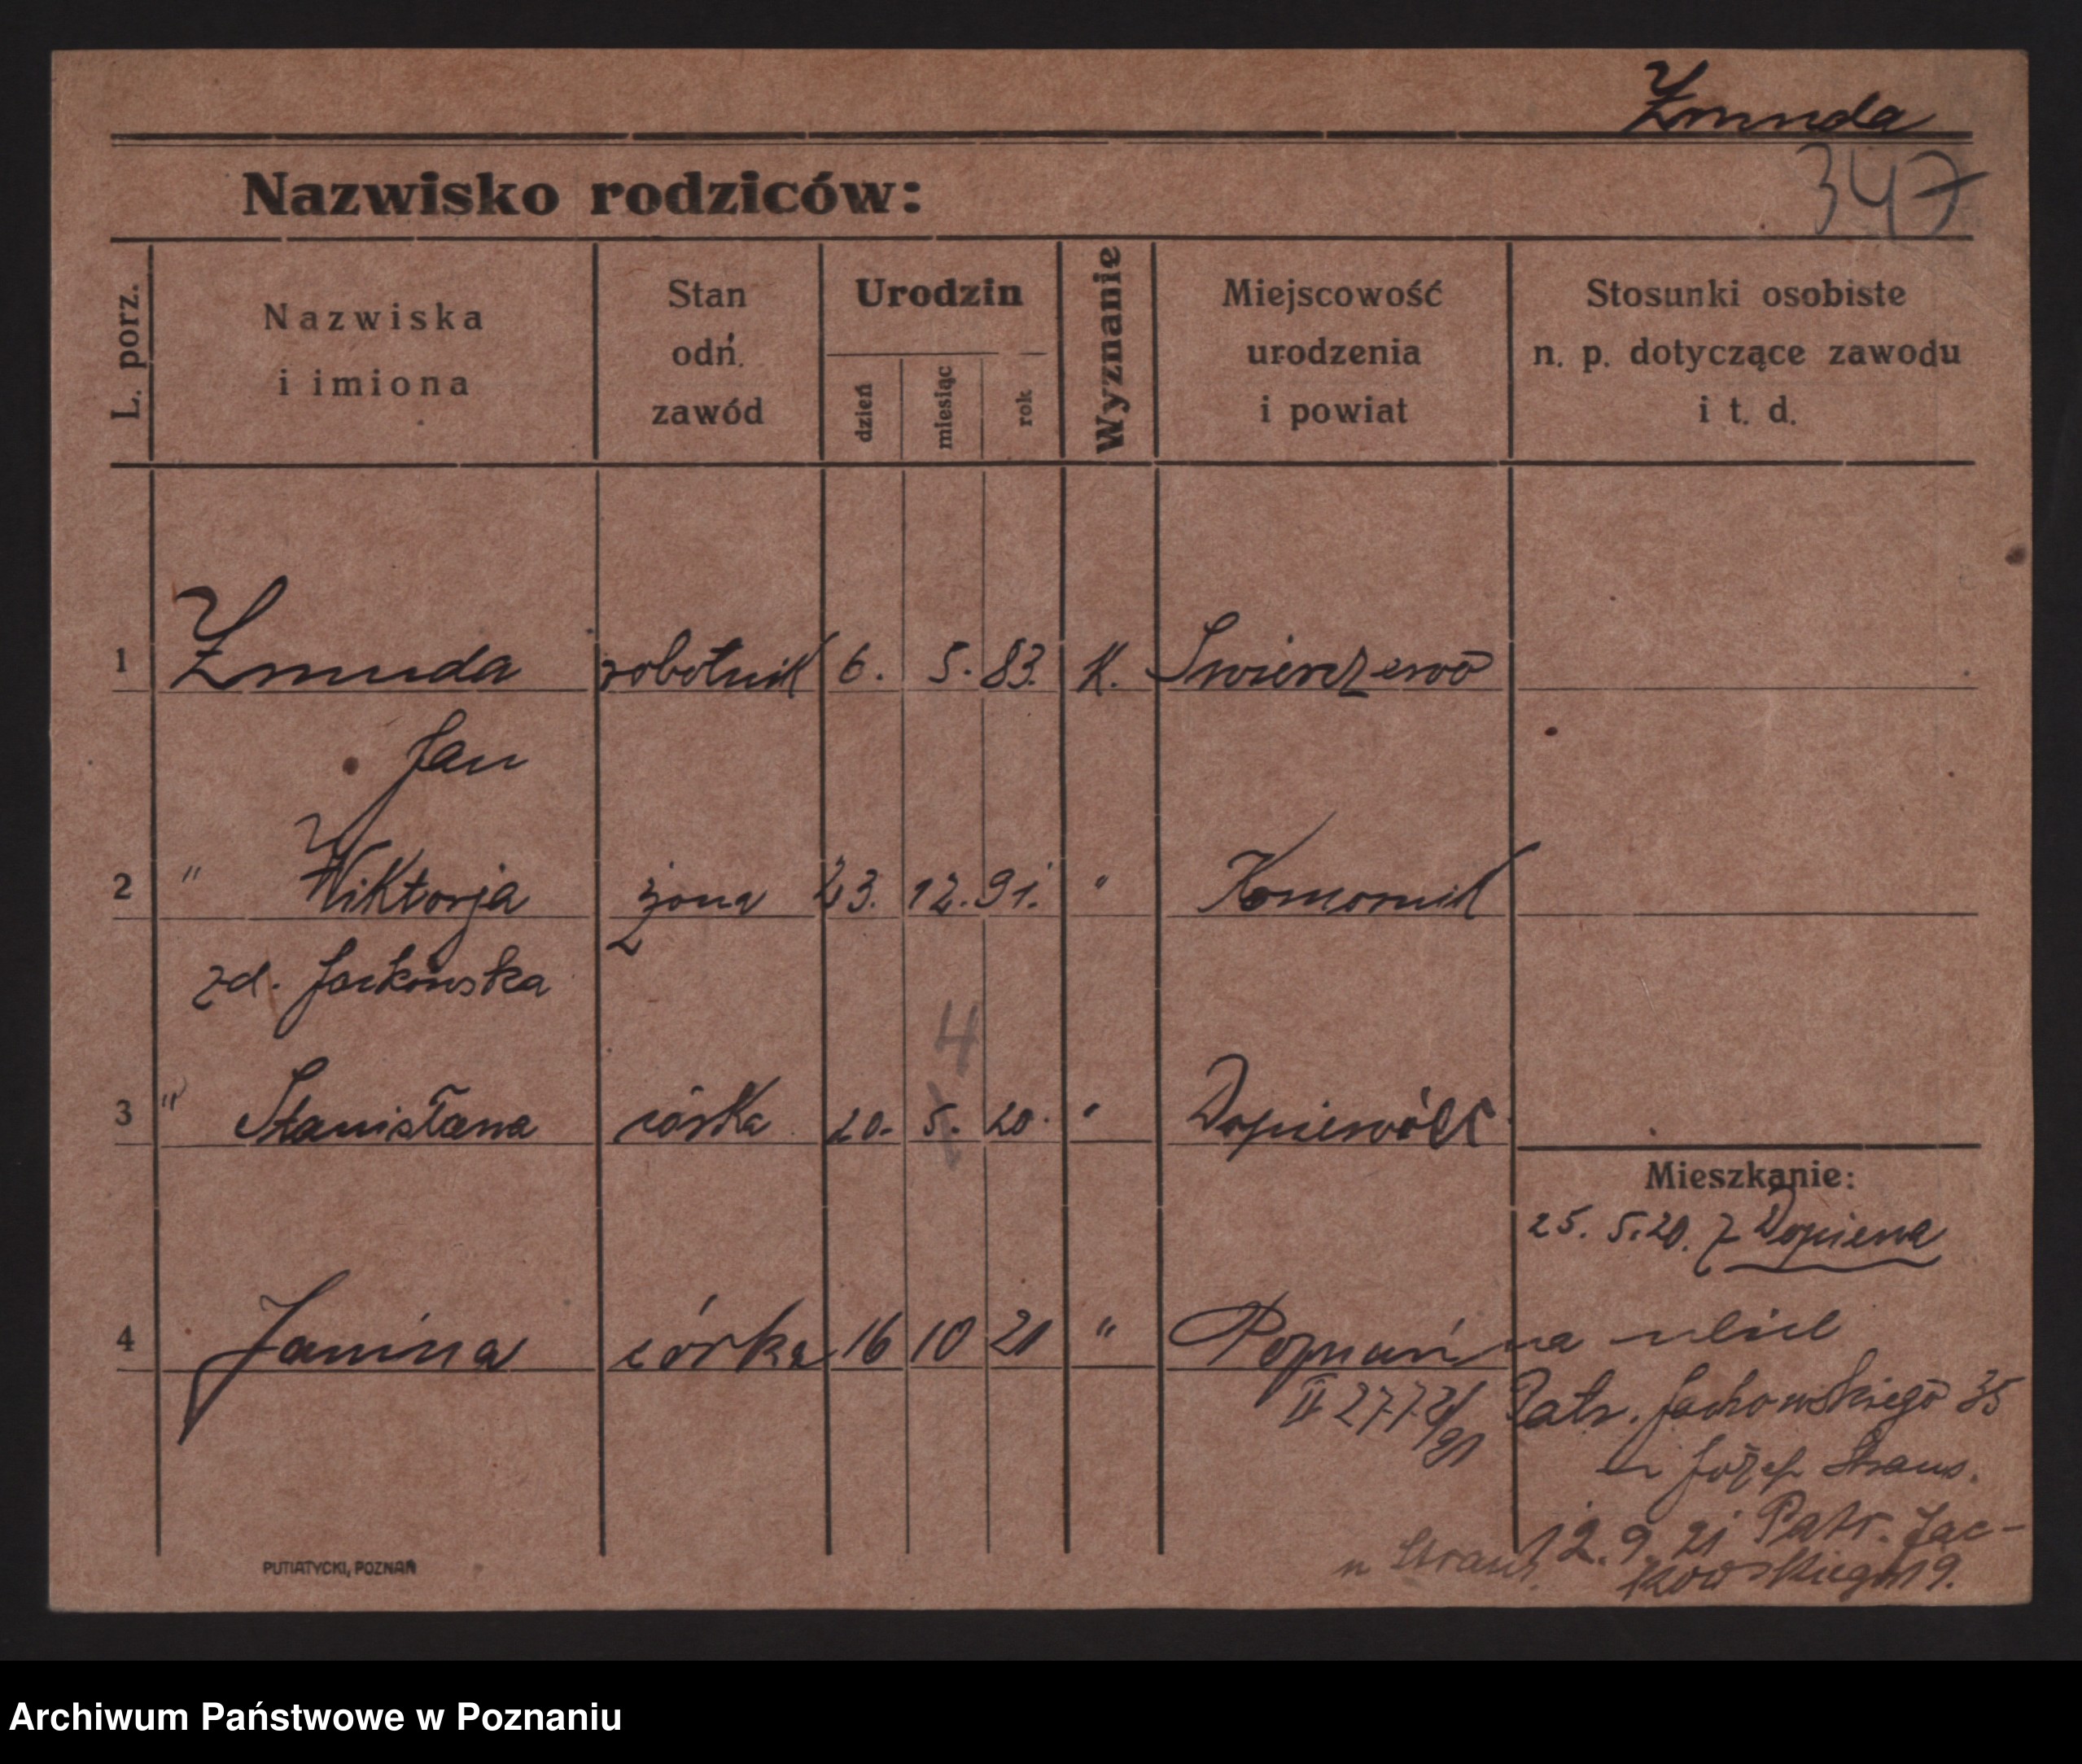 Żmuda
347
Nazwisko rodziców:
L. porz.
Nazwiska
i imiona
Stan
odn.
zawód
Urodzin
dzień
miesiąc
rok
Wyznanie
Miejscowość
urodzenia
i powiat
Stosunki osobiste
n. p. dotyczące zawodu
i t. d.
1 Żmuda robotnik 6. 5. 83. K. Swierczewo
Jan
2 " Wiktorja żona 23. 12. 91. " Komornik
zd. Jackowska
4
3 " Stanisława córka 20. 5. 20. " Dopiewiec
Mieszkanie:
25. 5. 20. z Dopiewa
4 Janina córka 16 10 20 " Poznań
na
II 2772/91
Patr. Jackowskiego 35
u Józef Straus.
12. 9 21 Patr. Jac-
kowskiego 19.
u Straus.
PUTIATYCKI, POZNAŃ
Archiwum Państwowe w Poznaniu